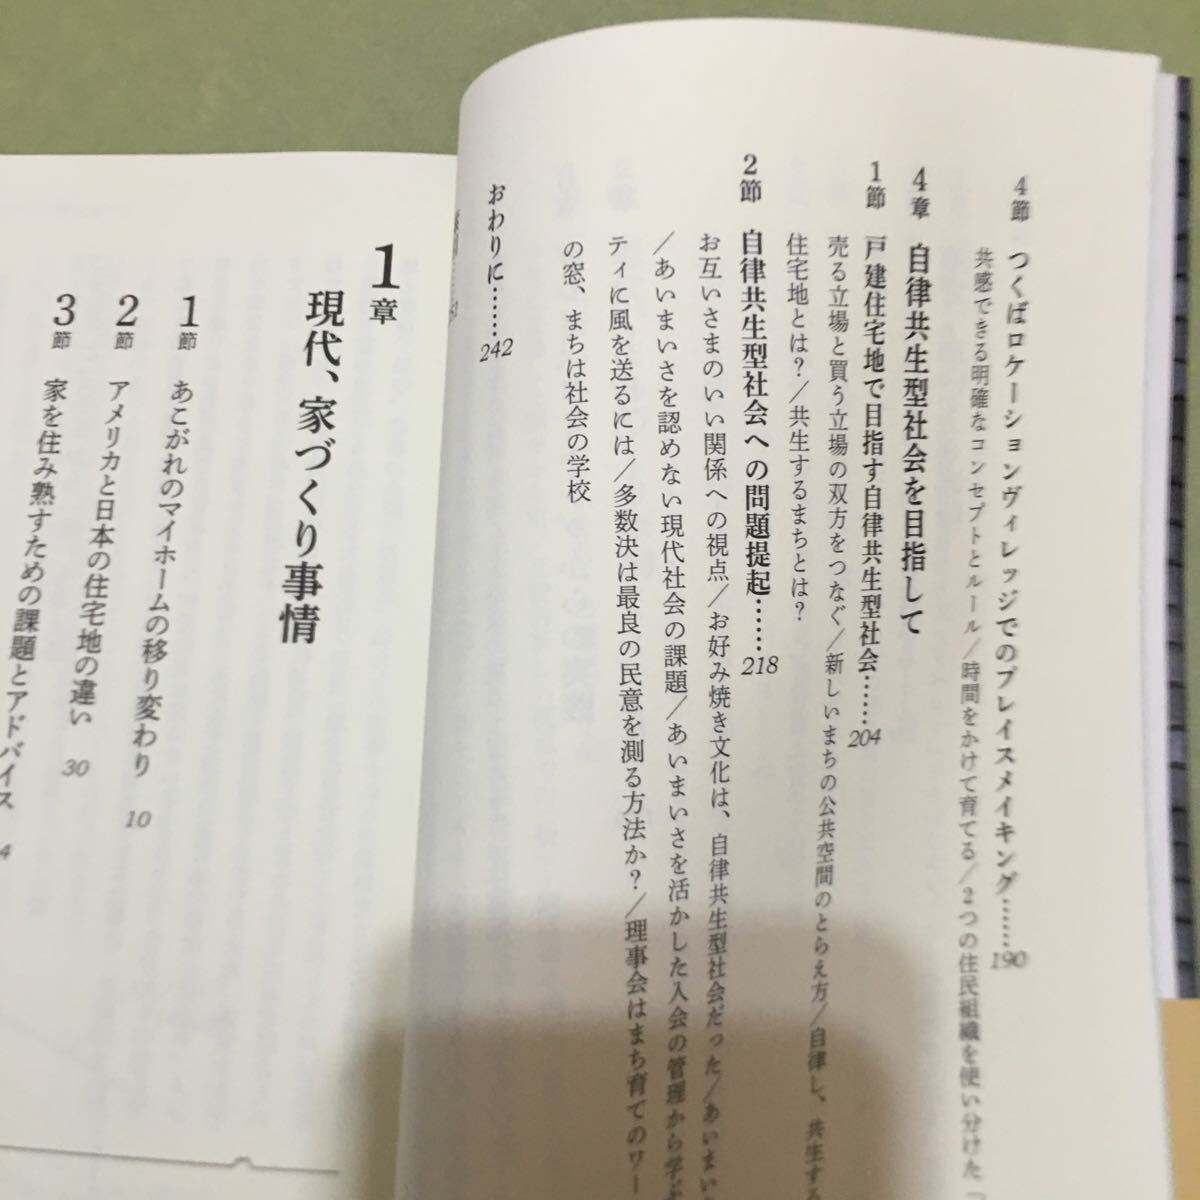 4節 つくばロケーションヴィレッジでのプレイスメイキング……190
共感できる明確なコンセプトとルール/時間をかけて育てる/2つの住民組織を使い分けた「
4章 自律共生型社会を目指して
1節 戸建住宅地で目指す自律共生型社会……204
売る立場と買う立場の双方をつなぐ/新しいまちの公共空間のとらえ方/自律し、共生する
住宅地とは?/共生するまちとは?
2節 自律共生型社会への問題提起……218
お互いさまのいい関係への視点/お好み焼き文化は、自律共生型社会だった/あいまい
/あいまいさを認めない現代社会の課題/あいまいさを活かした入会の管理から学ぶ
ティに風を送るには/多数決は最良の民意を測る方法か?/理事会はまち育てのワー
の窓、まちは社会の学校
おわりに……242
1章
現代、家づくり事情
1節 あこがれのマイホームの移り変わり 10
2節 アメリカと日本の住宅地の違い 30
3節 家を住み熟すための課題とアドバイス 4